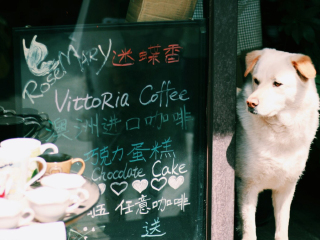 RoseMARY 迷深香
VittoRia Coffee
澳洲进口咖啡
巧克力蛋糕
Chocolate Cake
任意咖啡
送